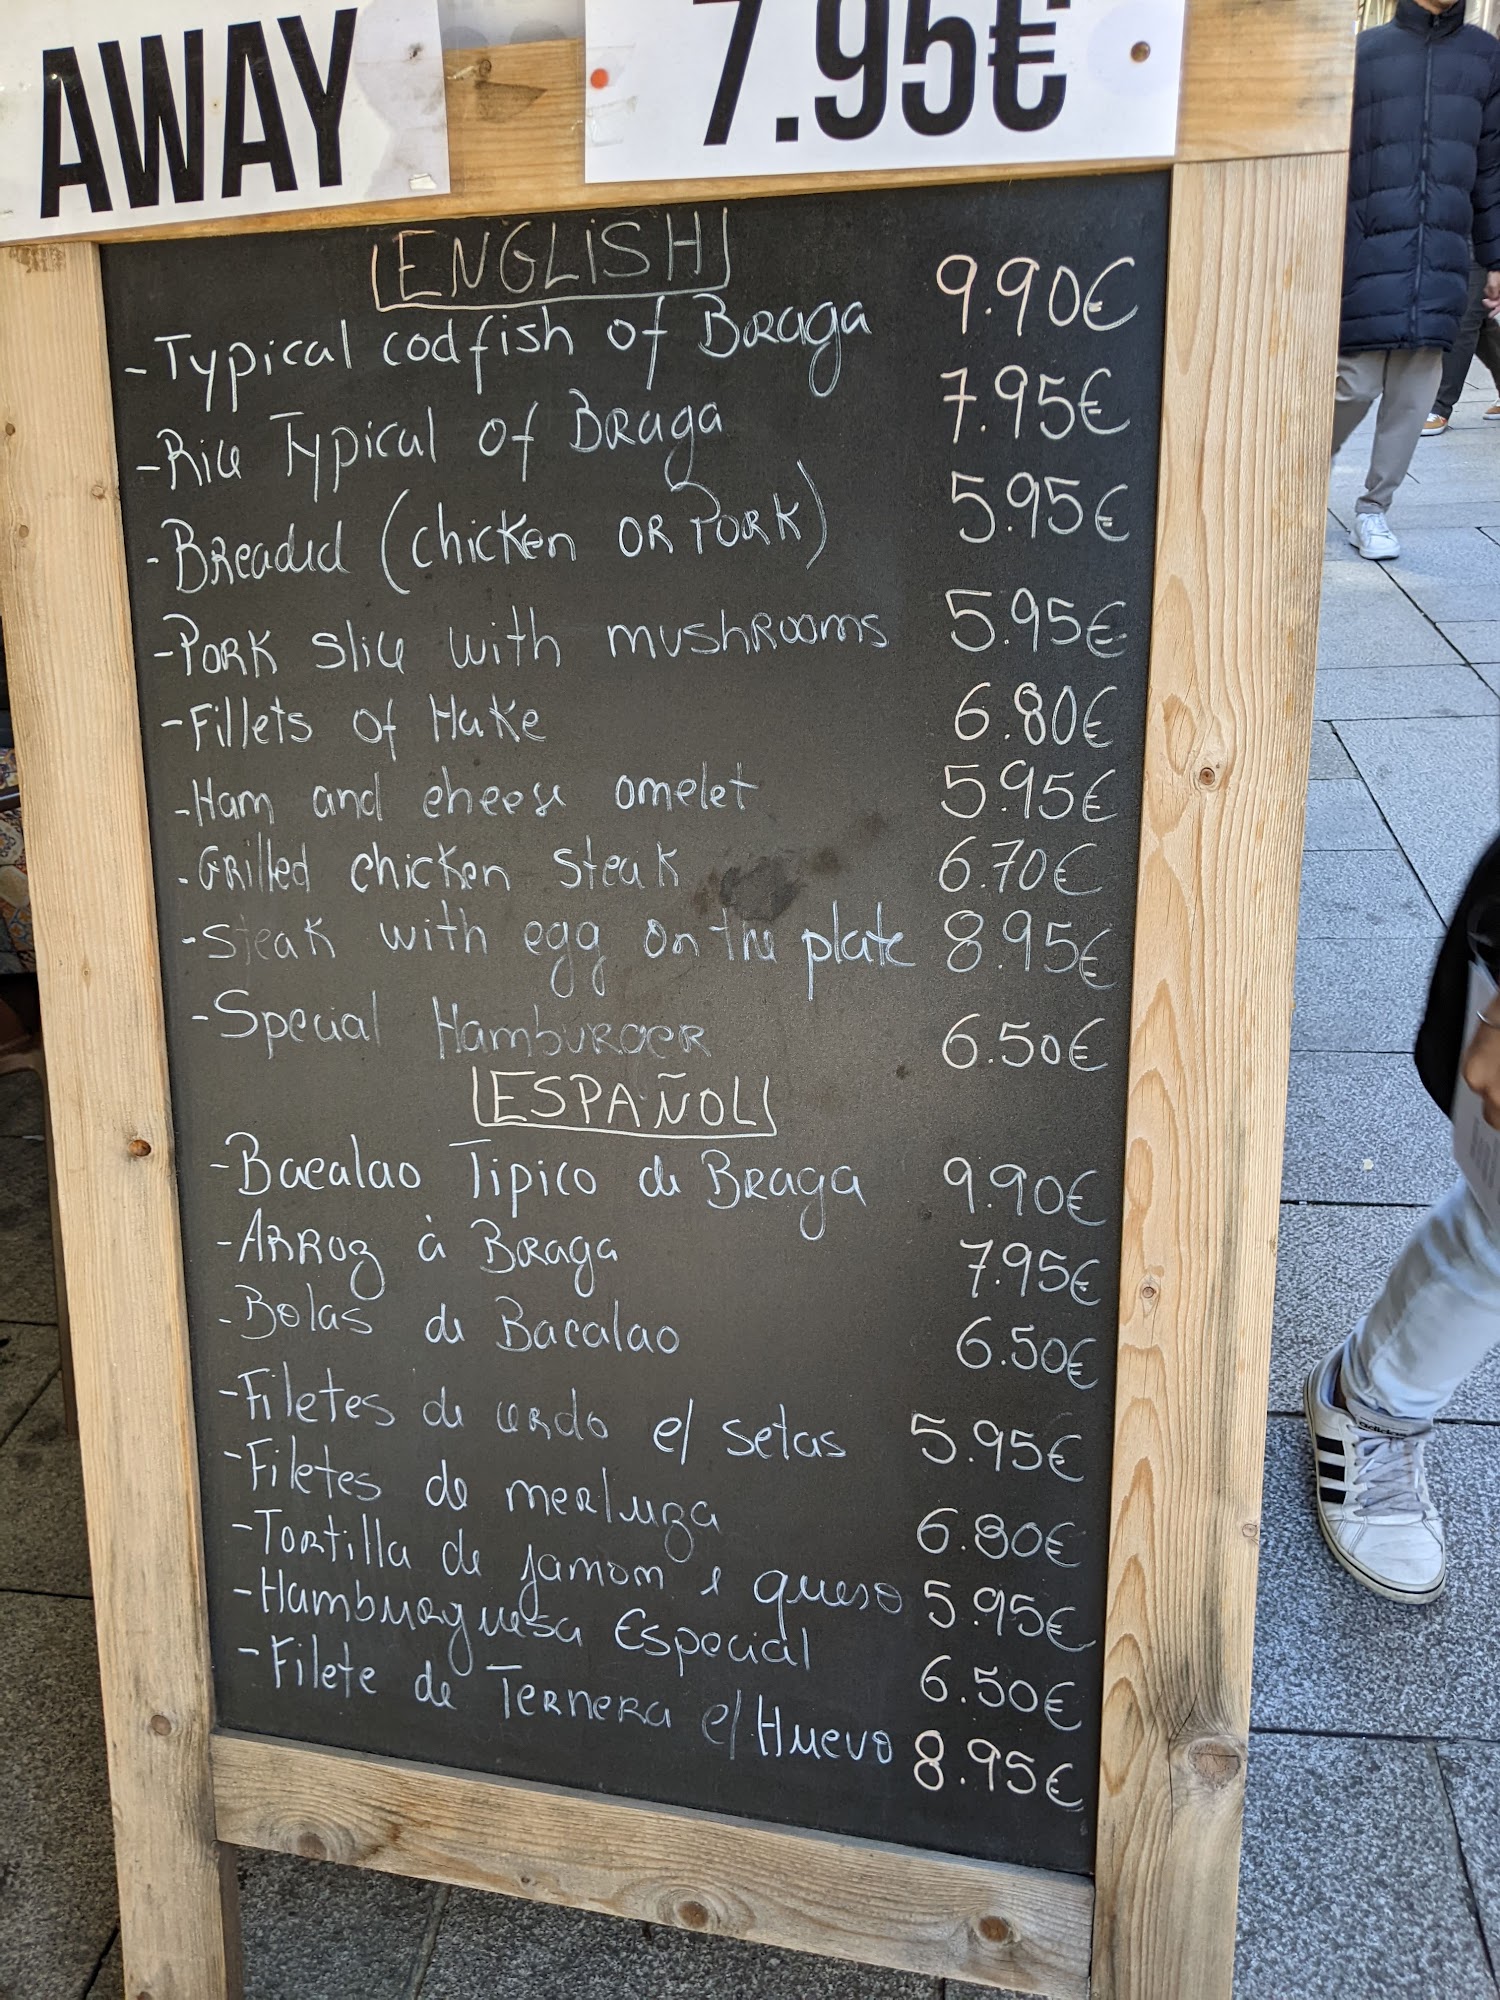 AWAY
7.95€
ENGLISH
- Typical codfish of Braga 9.90€
- Rice Typical of Braga 7.95€
- Breaded (chicken or Pork) 5.95€
- Pork slice with mushrooms 5.95€
- Fillets of Hake 6.80€
- Ham and cheese omelet 5.95€
- Grilled chicken steak 6.70€
- Steak with egg on the plate 8.95€
- Special Hamburger 6.50€
ESPAÑOL
- Bacalao Tipico de Braga 9.90€
- Arroz à Braga 7.95€
- Bolas de Bacalao 6.50€
- Filetes de cerdo c/ setas 5.95€
- Filetes de merluza 6.80€
- Tortilla de jamom e queso 5.95€
- Hamburguesa Especial 6.50€
- Filete de Ternera c/ Huevo 8.95€